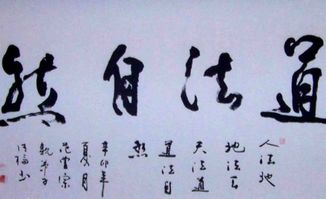 道法自然
人法地
地法天
天法道
道法自
然
辛卯年
夏月